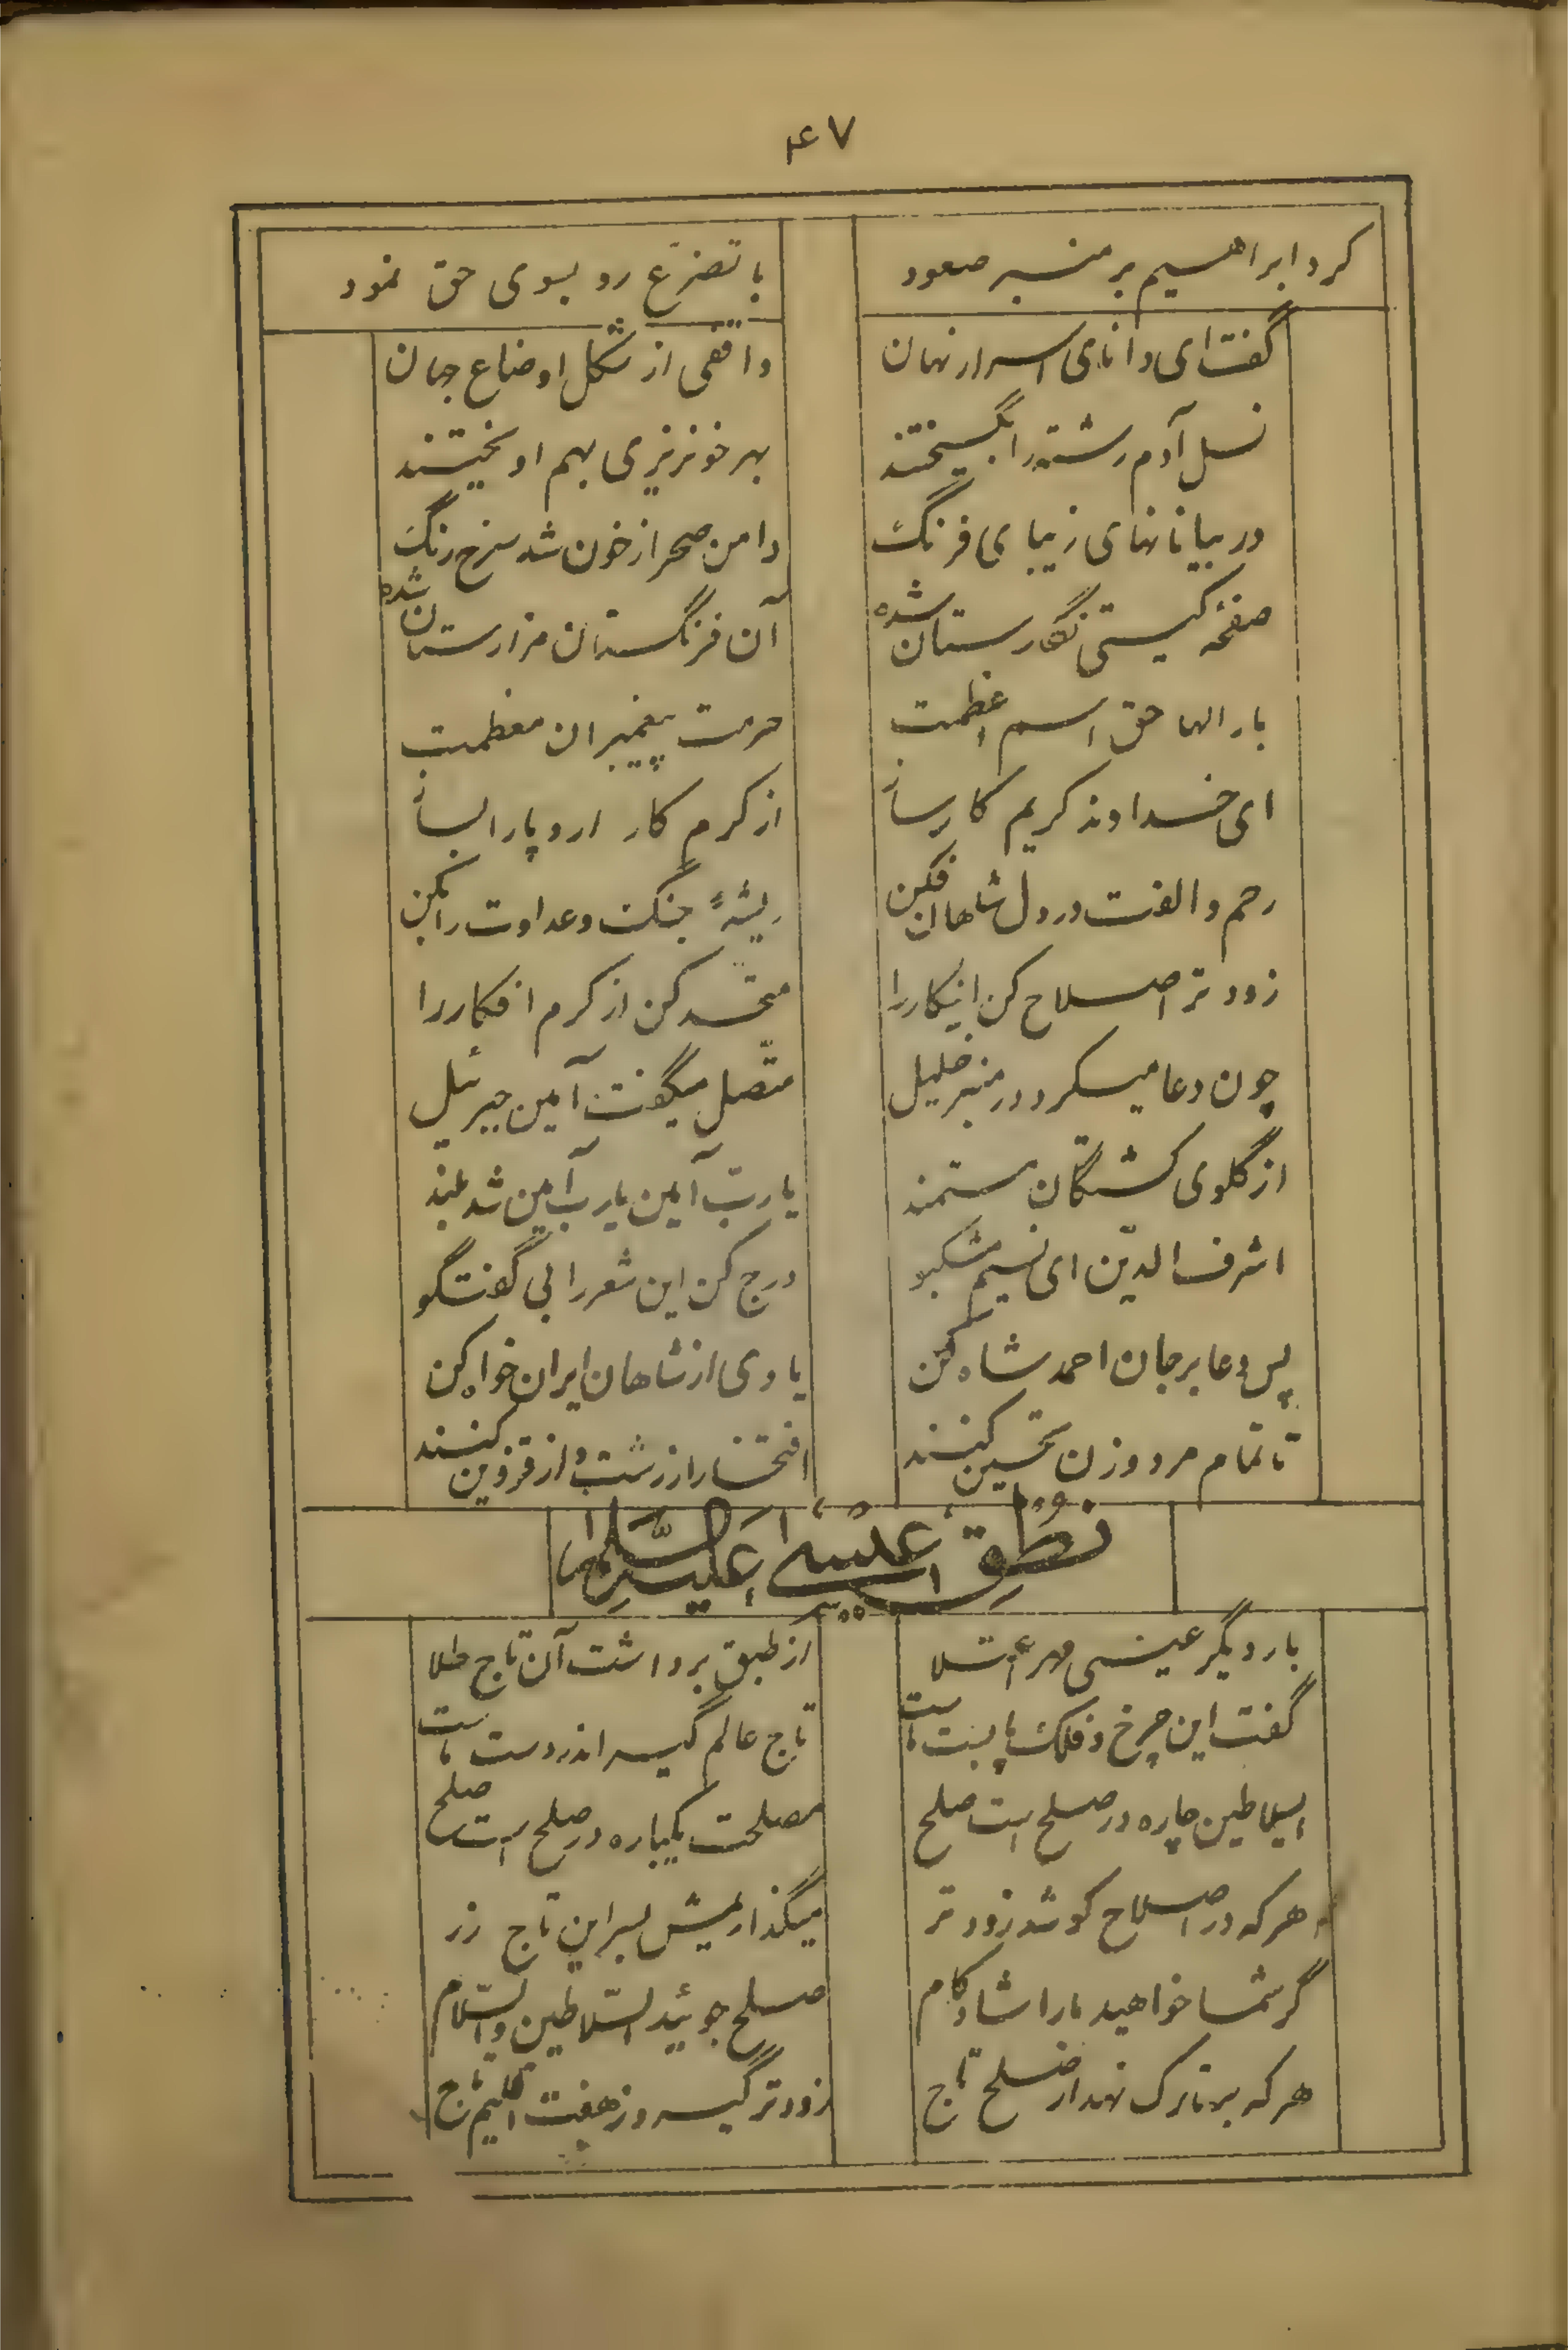 ۴۷
کرد ابراهیم بر منبر صعود با تضرّع رو بسوی حق نمود
گفت ای دانای اسرار نهان واقفی از شکل اوضاع جهان
نسل آدم رشته را بگسیختند بهر خونریزی بهم اویختند
در بیابانهای زیبای فرنگ دامن صحرا ز خون شد سرخ رنگ
صفحه گیتی نگارستان شده آن فرنگستان مزارستان شده
بار الها حق اسم اعظمت حرمت پیغمبران معظمت
ای خداوند کریم کارساز از کرم کار اروپا را بساز
رحم و الفت در دل شاهان فکن ریشهٔ جنگ و عداوت را بکن
زودتر اصلاح کن اینکار را متحد کن از کرم افکار را
چون دعا میکرد در منبر خلیل متّصل میگفت آمین جبرئیل
از گلوی کشتگان مستمند یا ربّ آمین یا رب آمین شد بلند
اشرف الدّین ای نسیم مشکبو درج کن این شعر را بی گفتگو
پس دعا بر جان احمد شاه کن یادی از شاهان ایران خواه کن
تا تمام مرد و زن تحسین کنند افتخار از رشت و از قزوین کنند
نطق عیسی علیه السّلام
بار دیگر عیسی مهر اعتلا از طبق برداشت آن تاج طلا
گفت این چرخ و فلک پابست ماست تاج عالم گیر اندر دست ماست
ایسلاطین چاره در صلح است صلح مصلحت یکباره در صلح است صلح
هر که در اصلاح کوشد زودتر میگذاریمش بسر این تاج زر
گر شما خواهید ما را شادکام صلح جوئید ایسّلاطین والسّلام
هر که بر تارک نهد از صلح تاج زودتر گیرد ز هفت اقلیم باج